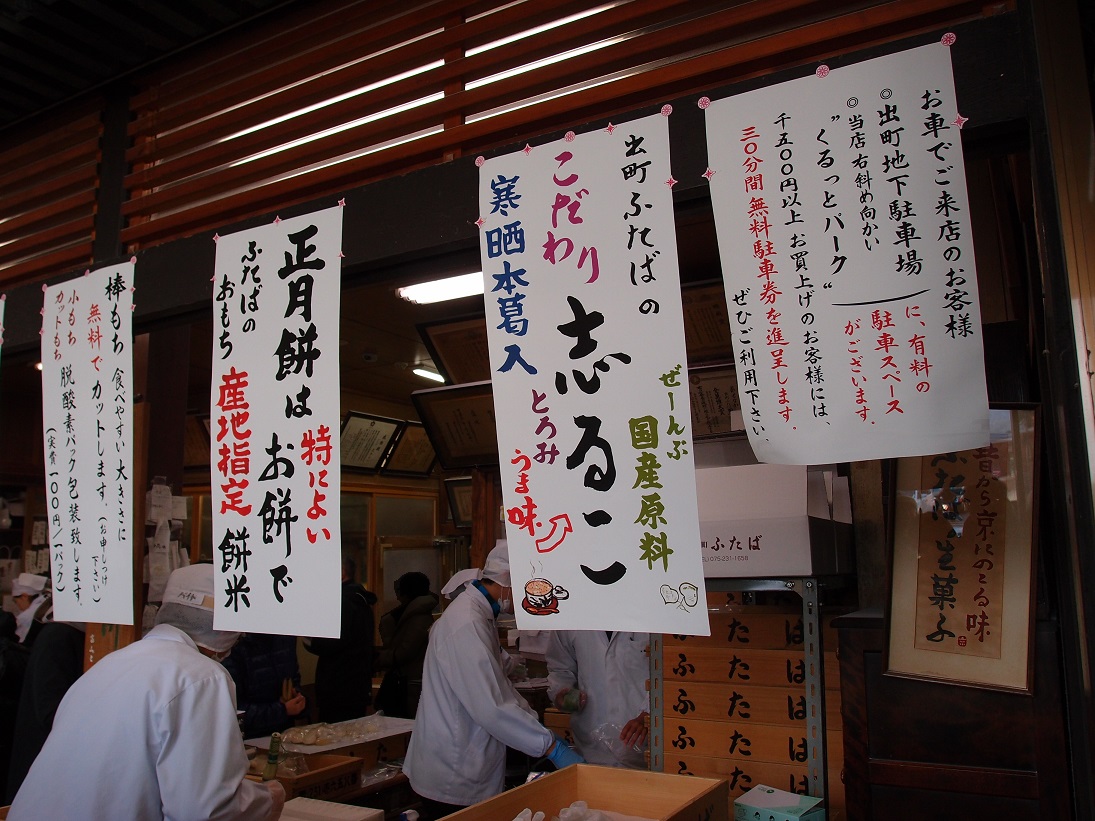 お車でご来店のお客様
◎出町地下駐車場
◎当店右斜め向かい
”くるっとパーク“
に、有料の
駐車スペース
がございます.
千五〇〇円以上 お買上げのお客様には、
三〇分間 無料駐車券を進呈します.
ぜひご利用下さい.
出町ふたばの
こだわり
志るこ
ぜーんぶ
国産原料
寒晒本葛入
とろみ
うま味
正月餅は お餅で
特によい
ふたばの
おもち
産地指定
餅米
棒もち 食べやすい 大きさに
無料で カットします.
(お申しつけ
下さい)
小もち
カットもち
脱酸素パック包装致します.
(実費 一〇〇円/一パック)
ふたば
TEL) 075-231-1658
昔から京にのこる味
ふたば
生菓子
ふたば
ふたば
ふたば
ふたば
ふたば